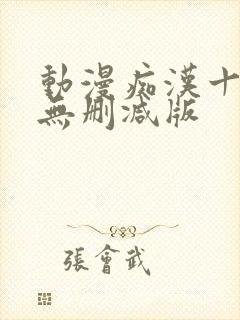 動漫痴漢十
無刪減版
張會武